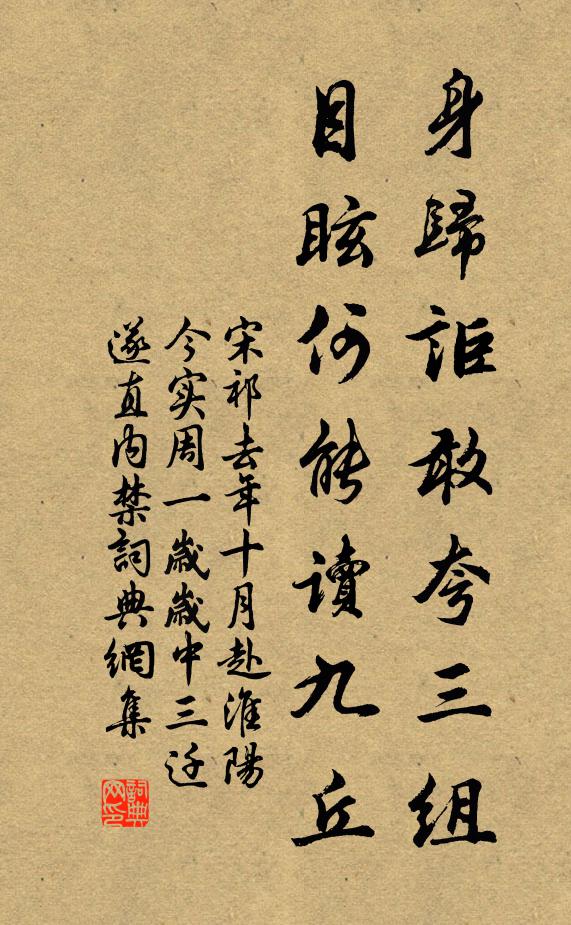 身歸詎敢夸三組
目眩何能讀九丘
宋祁去年十月赴淮陽
今实周一歲歲中三迁
遂直内禁詞典網集
詞典
网印